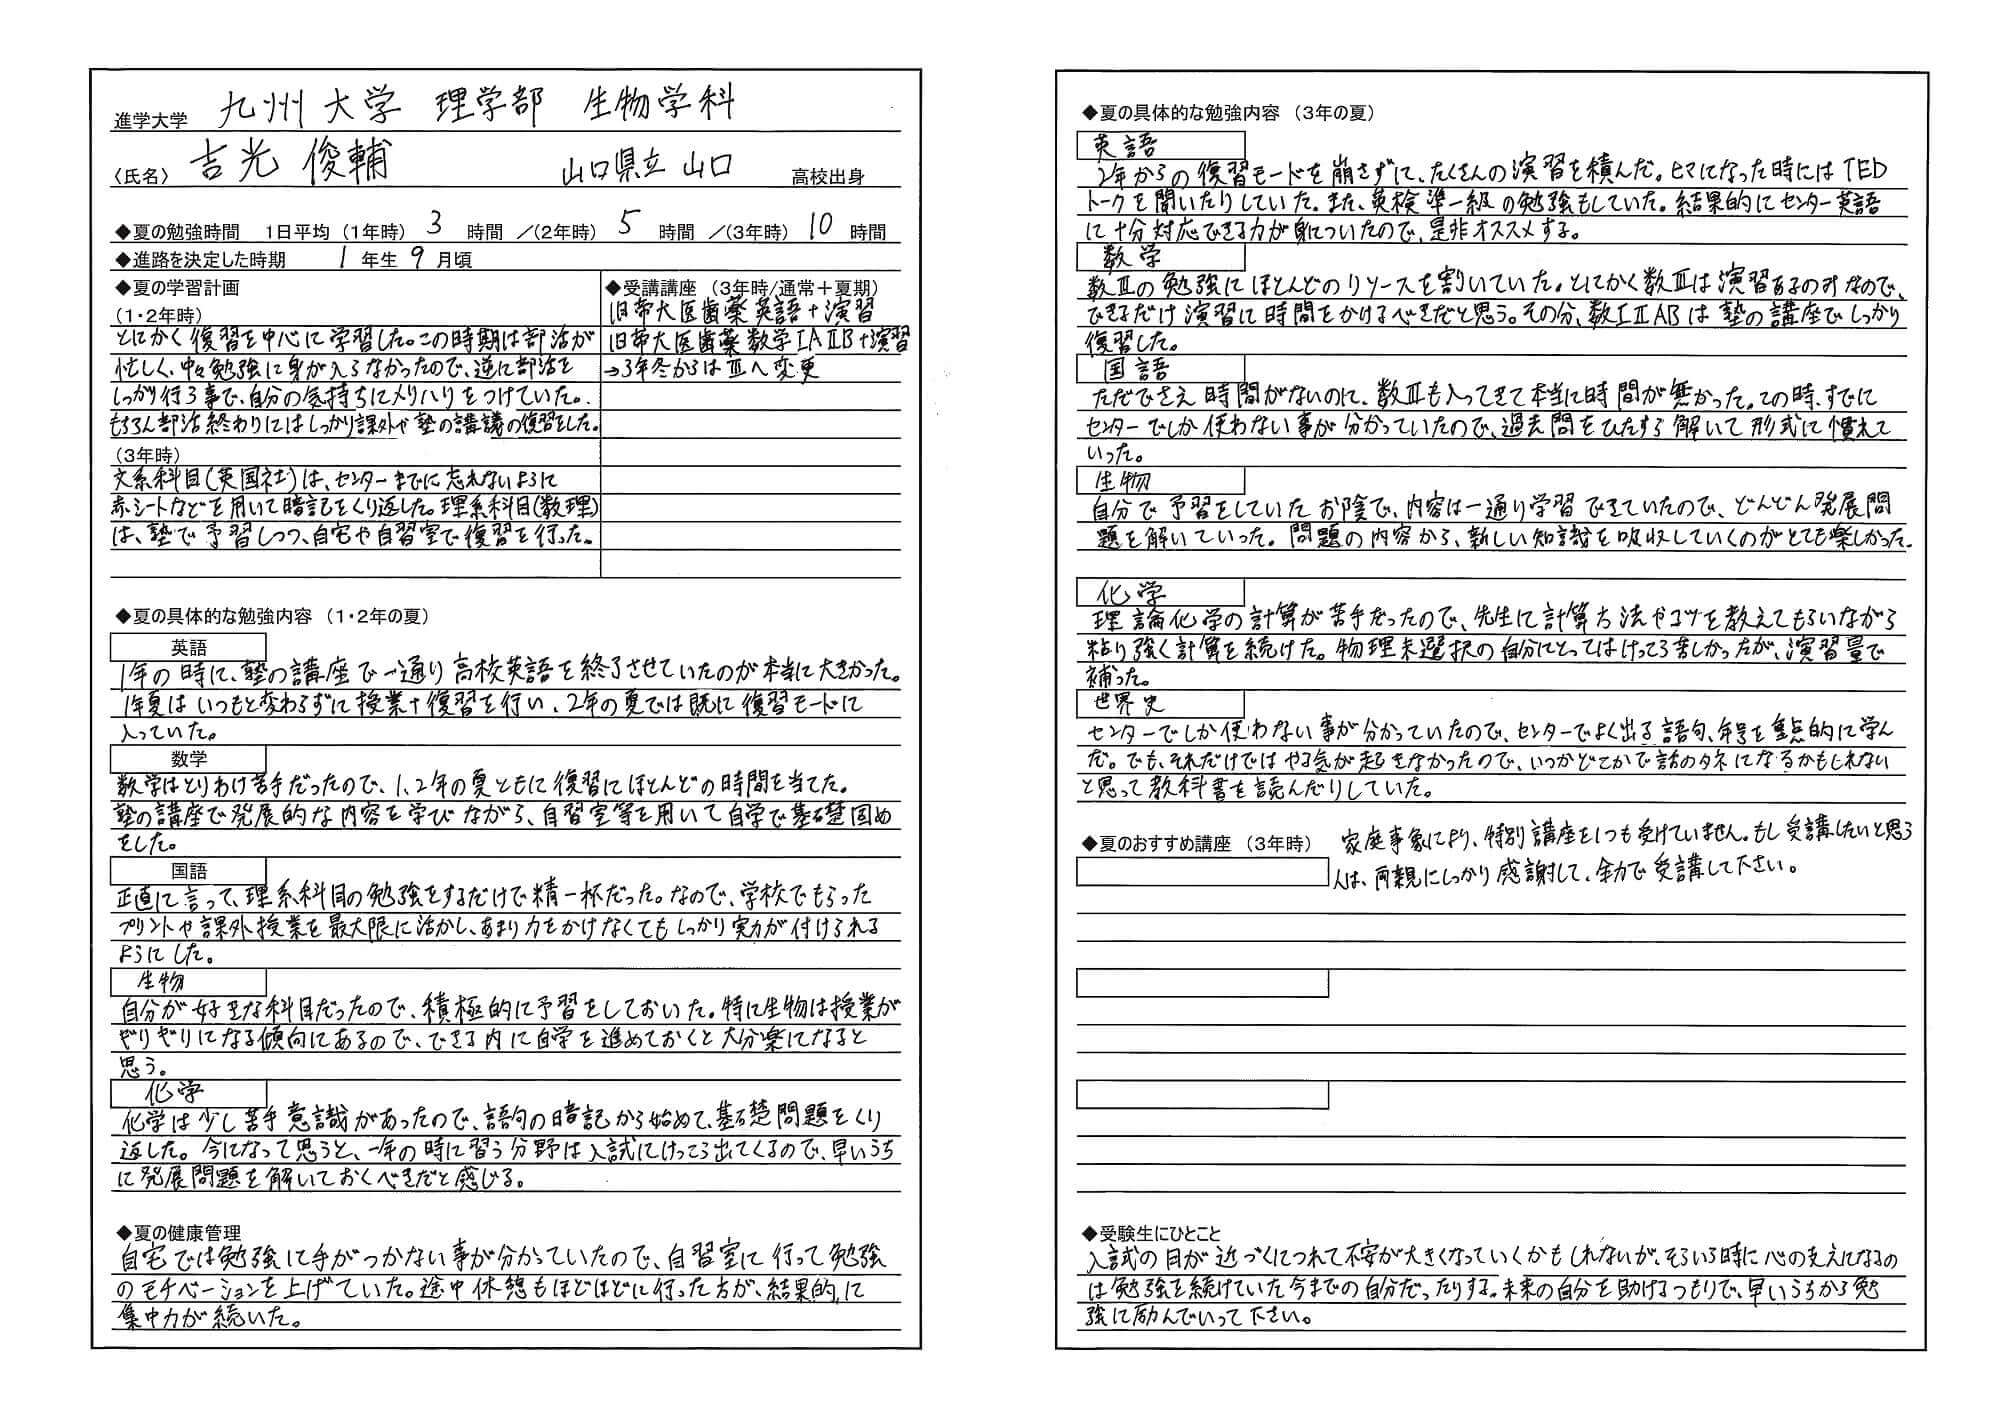 進学大学 九州大学 理学部 生物学科
〈氏名〉 吉光 俊輔 山口県立 山口 高校出身
◆夏の勉強時間 1日平均（1年時） 3 時間 ／（2年時） 5 時間 ／（3年時） 10 時間
◆進路を決定した時期 1 年生 9 月頃
◆夏の学習計画
（1・2年時）
とにかく復習を中心に学習した。この時期は部活が
忙しく、中々勉強に身が入らなかったので、逆に部活を
しっかり行う事で、自分の気持ちにメリハリをつけていた。
もちろん部活終わりにはしっかり課外や塾の講議の復習をした。
（3年時）
文系科目(英国社)は、センターまでに忘れないように
赤シートなどを用いて暗記をくり返した。理系科目(数理)
は、塾で予習しつつ、自宅や自習室で復習を行った。
◆受講講座（3年時/通常＋夏期）
旧帝大医歯薬英語+演習
旧帝大医歯薬数学ⅠAⅡB+演習
→3年冬からはⅢへ変更
◆夏の具体的な勉強内容（1・2年の夏）
英語
1年の時に、塾の講座で一通り高校英語を終了させていたのが本当に大きかった。
1年夏はいつもと変わらずに授業+復習を行い、2年の夏では既に復習モードに
入っていた。
数学
数学はとりわけ苦手だったので、1、2年の夏ともに復習にほとんどの時間を当てた。
塾の講座で発展的な内容を学びながら、自習室等を用いて自学で基礎固め
をした。
国語
正直に言って、理系科目の勉強をするだけで精一杯だった。なので、学校でもらった
プリントや課外授業を最大限に活かし、あまり力をかけなくてもしっかり実力が付けられる
ようにした。
生物
自分が好きな科目だったので、積極的に予習をしておいた。特に生物は授業が
ギリギリになる傾向にあるので、できる内に自学を進めておくと大分楽になると
思う。
化学
化学は少し苦手意識があったので、語句の暗記から始めて、基礎問題をくり
返した。今になって思うと、一年の時に習う分野は入試にけっこう出てくるので、早いうち
に発展問題を解いておくべきだと感じる。
◆夏の健康管理
自宅では勉強に手がつかない事が分かっていたので、自習室に行って勉強
のモチベーションを上げていた。途中休憩もほどほどに行った方が、結果的に
集中力が続いた。
◆夏の具体的な勉強内容（3年の夏）
英語
2年からの復習モードを崩さずに、たくさんの演習を積んだ。ヒマになった時にはTED
トークを聞いたりしていた。また、英検準一級の勉強もしていた。結果的にセンター英語
に十分対応できる力が身についたので、是非オススメする。
数学
数Ⅲの勉強にほとんどのリソースを割いていた。とにかく数Ⅲは演習あるのみなので、
できるだけ演習に時間をかけるべきだと思う。その分、数ⅠⅡABは塾の講座でしっかり
復習した。
国語
ただでさえ時間がないのに、数Ⅲも入ってきて本当に時間が無かった。この時、すでに
センターでしか使わない事が分かっていたので、過去問をひたすら解いて形式に慣れて
いった。
生物
自分で予習をしていたお陰で、内容は一通り学習できていたので、どんどん発展問
題を解いていった。問題の内容から、新しい知識を吸収していくのがとても楽しかった。
化学
理論化学の計算が苦手だったので、先生に計算方法やコツを教えてもらいながら
粘り強く計算を続けた。物理未選択の自分にとってはけっこう苦しかったが、演習量で
補った。
世界史
センターでしか使わない事が分かっていたので、センターでよく出る語句、年号を重点的に学ん
だ。でも、それだけではやる気が起きなかったので、いつかどこかで話のタネになるかもしれない
と思って教科書を読んだりしていた。
◆夏のおすすめ講座（3年時） 家庭事象により、特別講座を1つも受けていません。もし受講したいと思う
人は、両親にしっかり感謝して、全力で受講して下さい。
◆受験生にひとこと
入試の日が近づくにつれて不安が大きくなっていくかもしれないが、そういう時に心の支えになるの
は勉強を続けていた今までの自分だったりする。未来の自分を助けるつもりで、早いうちから勉
強に励んでいって下さい。